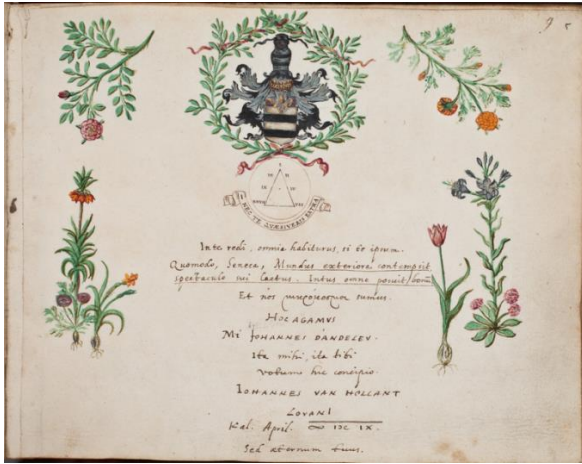 9 5
NEC TE QUAESIVERIS EXTRA
In te redi, omnia habiturus, si te ipsum.
Quomodo, Seneca, Mundus exteriora contempsit
spectaculo sui laetus. Intus omne posuit bonum
Et nos sumus.
HOC AGAMVS
Mi JOHANNES DANDELEU.
Ita mihi, ita tibi
votum hic concipio.
IOHANNES VAN HOLLANT
LOVANI
Kal. April. IX.
Sed aeternum tuus.